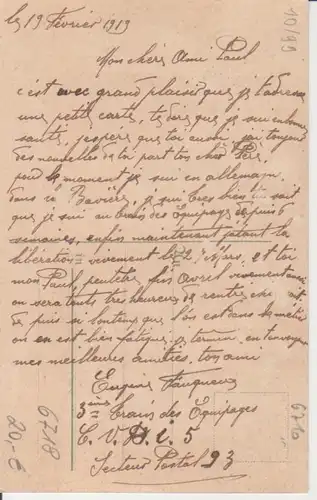 le 19 Février 1919
Mon chère Ami Paul
c'est avec grand plaisir que je t'adresse
une petite carte, te dire que je sui en bonne
santé, j'espère que toi aussi, j'ai toujour
des nouvelles de toi part ton cher Père,
pour le moment je sui en allemagn
dans la Bavière, je sui tres bien tu sait
que je sui au train des équipage depuis
semaines, enfin maintenant j'attent la
libération vivement le 2 Mars, et toi
mon Paul, peutetre
on sera touts tres heureux de rentre
de puis si lontemp que l'on est dans le metier
on en est bien fatigue, je termine en t'envoyan
mes meilleures amities, ton ami
Eugène
3ème Train des Equipages
C. V. 5
Secteur Postal 93
10/99
6718
20,-€